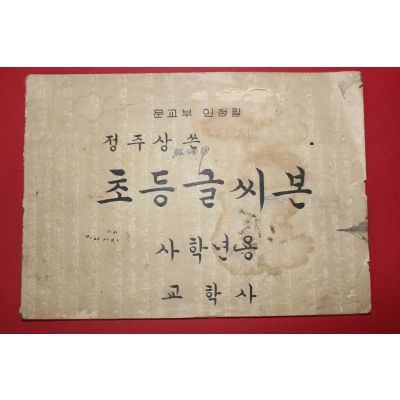 문교부 인정필
정주상 씀
초등글씨본
사학년용
교학사